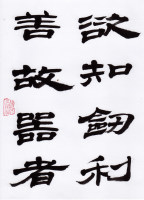 欲知劔利
善故器者